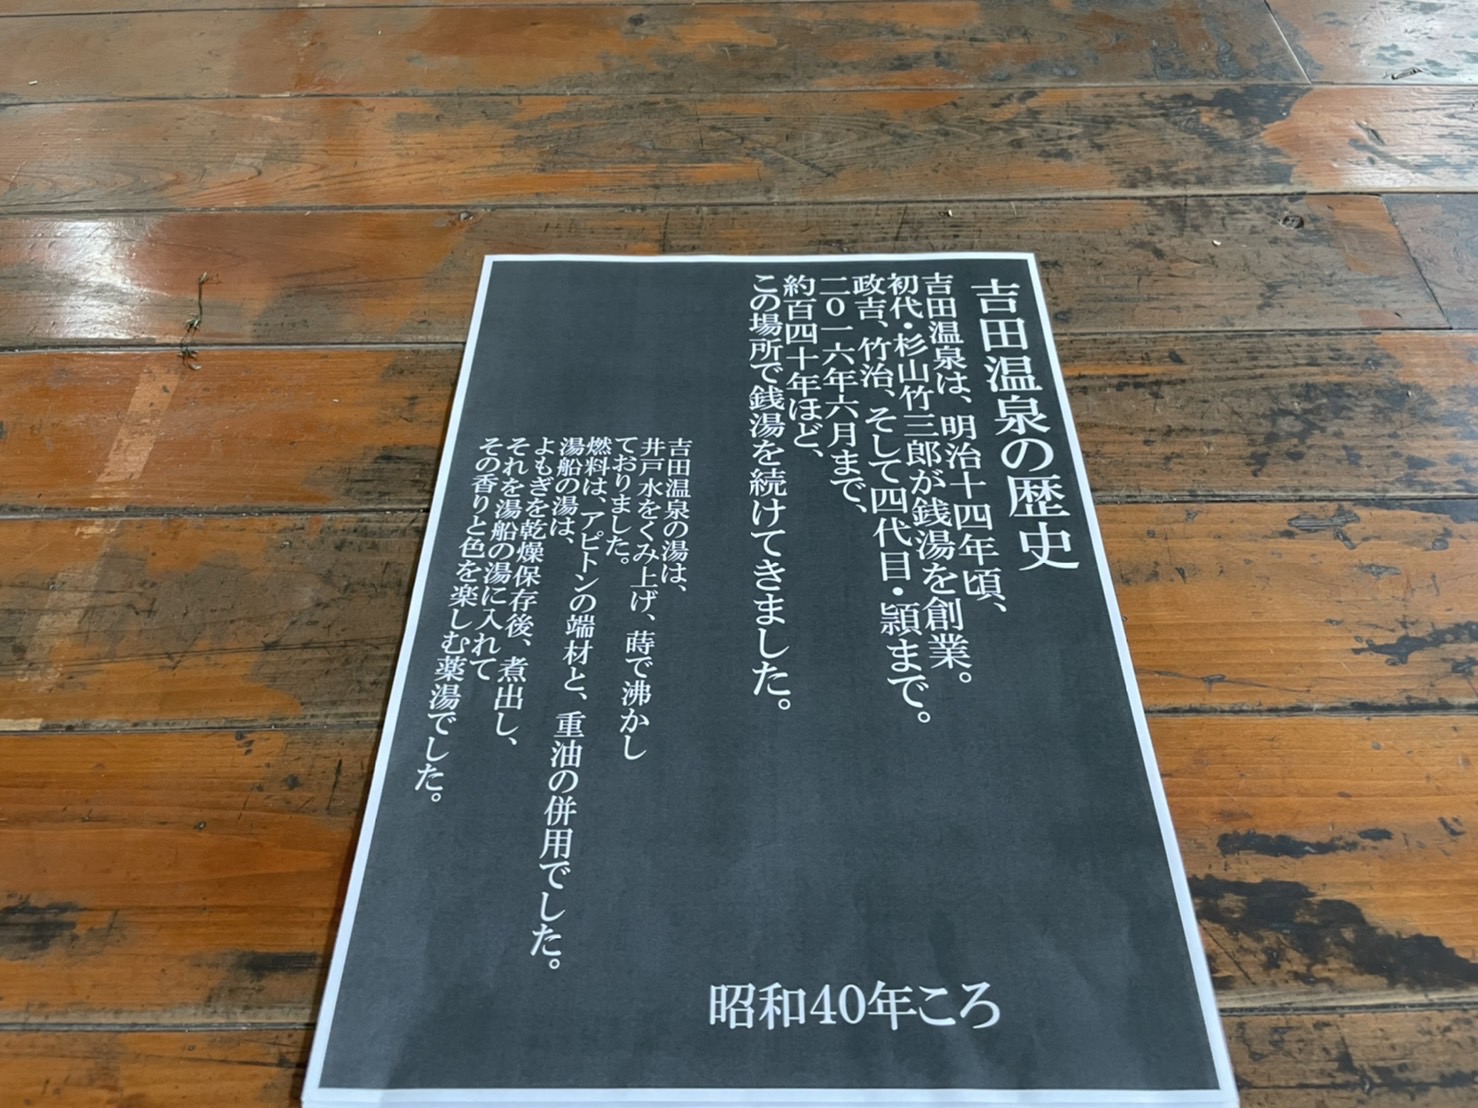 吉田温泉の歴史
吉田温泉は、明治十四年頃、
初代・杉山竹三郎が銭湯を創業。
政吉、竹治、そして四代目・頴まで。
二〇一六年六月まで、
約百四十年ほど、
この場所で銭湯を続けてきました。
吉田温泉の湯は、
井戸水をくみ上げ、蒔で沸かし
ておりました。
燃料は、アピトンの端材と、重油の併用でした。
湯船の湯は、
よもぎを乾燥保存後、煮出し、
それを湯船の湯に入れて
その香りと色を楽しむ薬湯でした。
昭和40年ころ